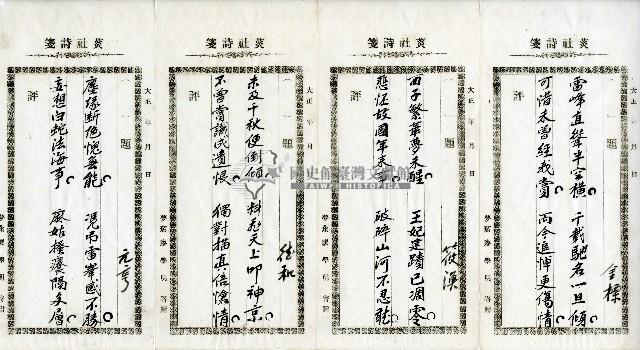 社詩箋
大正 年 月 日
題
雷峰直聳半空橫 千載馳名一旦傾
可惜未曾經我賞 而今追悼更傷情
金標
社詩箋
大正 年 月 日
題
西子繁華夢未醒 王妃建蹟已凋零
悲 故國年來事 破碎山河不忍聽
評
筱渙
社詩箋
大正 年 月 日
題
未及千秋便倒傾 料 天上叩神京
不曾嘗識成遺恨 獨對描真倍愴情
評
維和
社詩箋
大正 年 月 日
題
塵緣斷絕愧無能 憑弔雷峯感不勝
妄想白蛇法海事 搔癢隔 層
評
元亨
國史館臺灣文獻館
TAIWAN HISTORICA